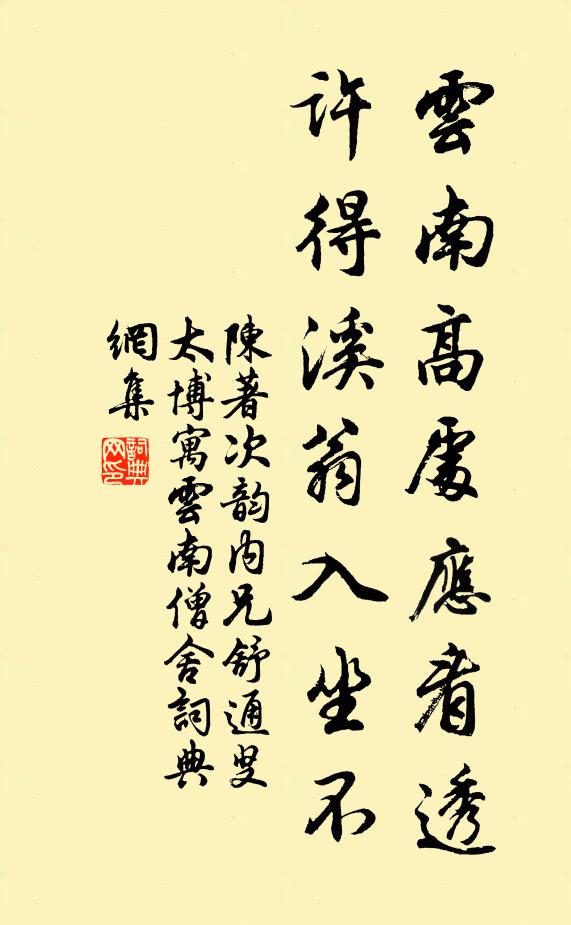 雲南高處應看透
許得溪翁入坐不
陳著次韵内兄舒通叟
太博寓雲南僧舍詞典
網集
詞典網印